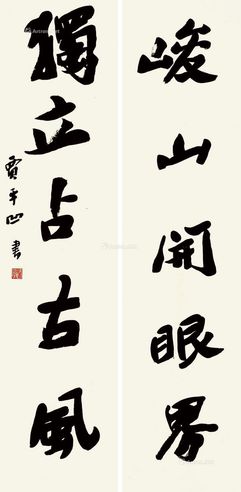 峻山開眼界
獨立占古風
賈平凹書